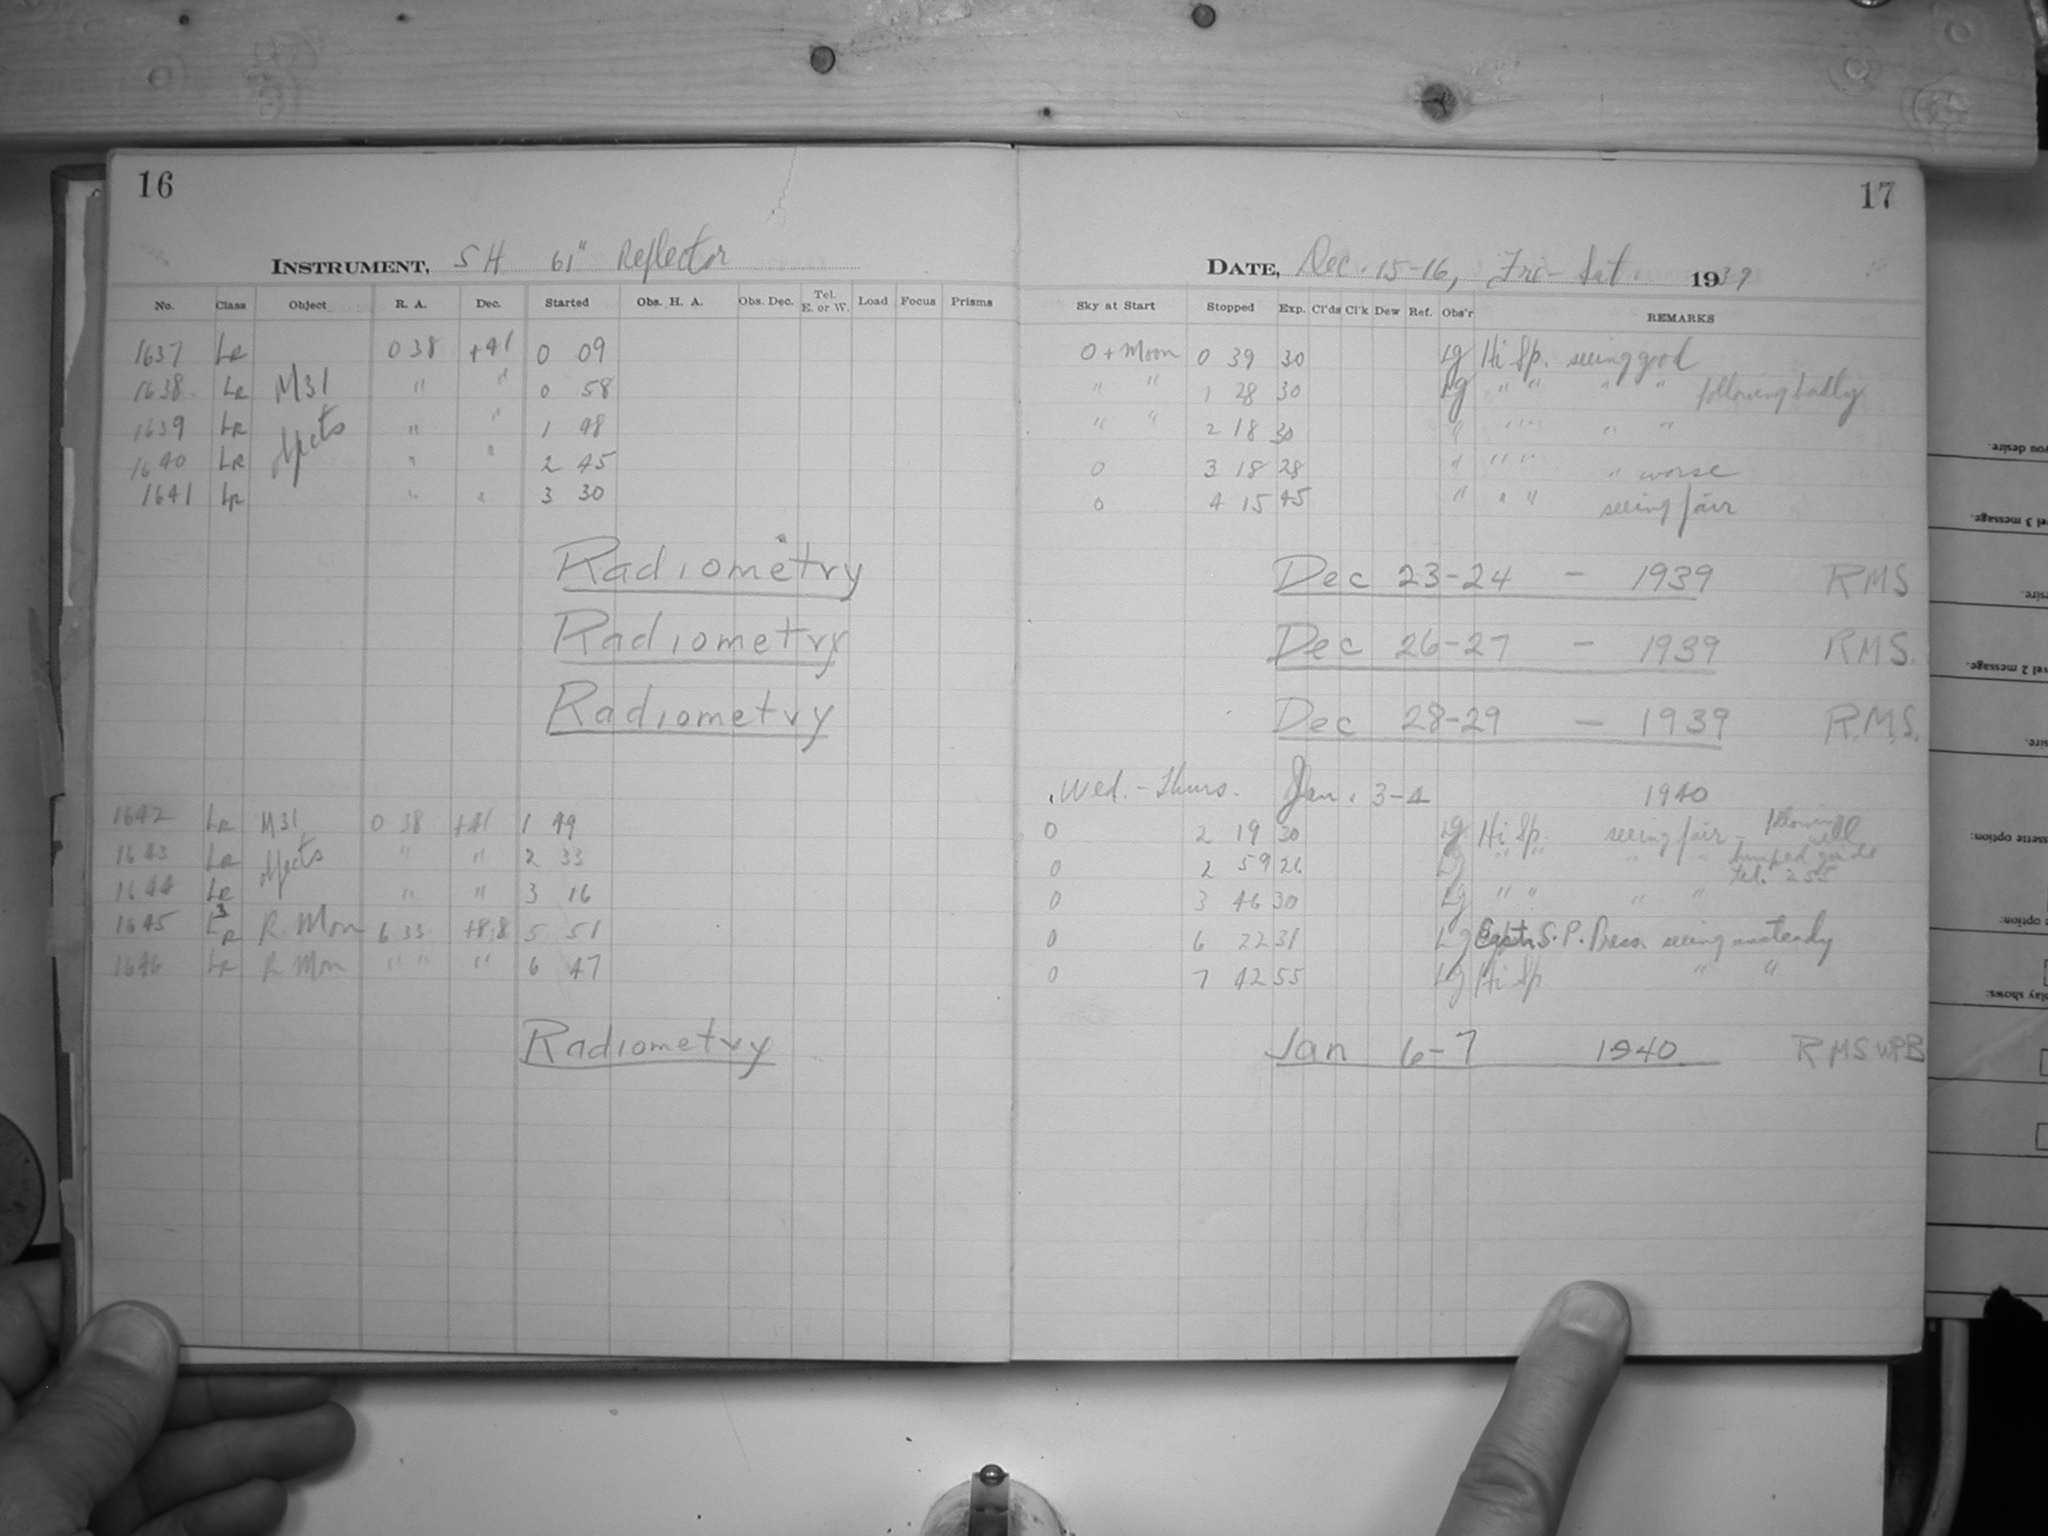 16
INSTRUMENT, SH 61" Reflector
No. Class Object R. A. Dec. Started Obs. H. A. Obs. Dec. Tel. E. or W. Load Focus Prisms
1637 LR 0 38 +41 0 09
1638 LR M31 " " 0 58
1639 LR objects " " 1 48
1640 LR " " 2 45
1641 LR " " 3 30
Radiometry
Radiometry
Radiometry
1642 LR M31 0 38 +41 1 49
1643 LR objects " " 2 33
1644 LR " " 3 16
1645 L3R R Mon 6 33 +8.8 5 51
1646 LR R Mon " " " 6 47
Radiometry
17
DATE, Dec. 15-16, Fri - Sat 1939
Sky at Start Stopped Exp. Cl'ds Cl'k Dew Ref. Obs'r REMARKS
0 + Moon 0 39 30 Lg Hi Sp. seeing good
" " 1 28 30 Lg " " " " following badly
" " 2 18 30 " " " " "
0 3 18 28 " " " " worse
0 4 15 45 " " " seeing fair
Dec 23-24 - 1939 RMS
Dec 26-27 - 1939 RMS.
Dec 28-29 - 1939 R.M.S.
Wed. - Thurs. Jan. 3-4 1940
0 2 19 30 Lg Hi Sp. seeing fair - following well
0 2 59 26 Lg " " " " bumped guide tel. 255
0 3 46 30 Lg " " " "
0 6 22 31 Lg S. P. Press seeing unsteady
0 7 42 55 Lg Hi Sp " "
Jan 6-7 1940 RMS WPB
you desire.
vel 3 message.
sire.
vel 2 message.
sire.
ssette option:
option:
play shows: